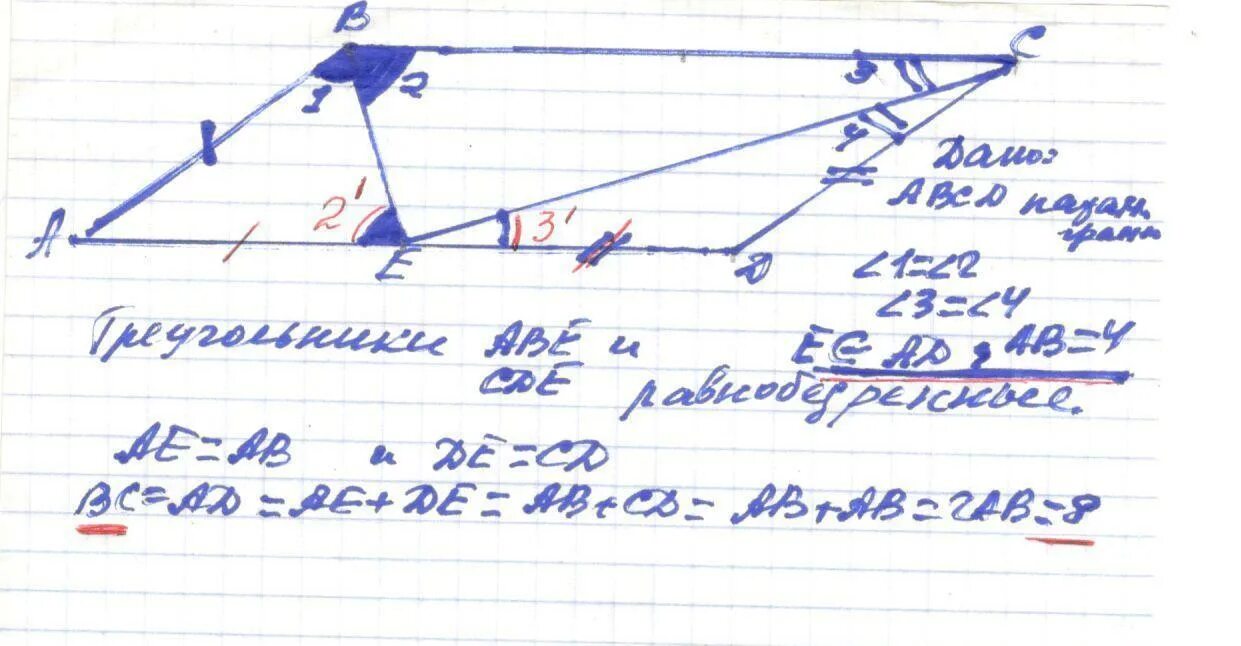 B
C
1
2
3
4
A
2'
3'
E
D
Дано:
ABCD паралл
грамм
∠1=∠2
∠3=∠4
E ∈ AD, AB=4
Треугольники ABE и
CDE равнобедренные.
AE=AB и DE=CD
BC=AD=AE+DE=AB+CD=AB+AB=2AB=8